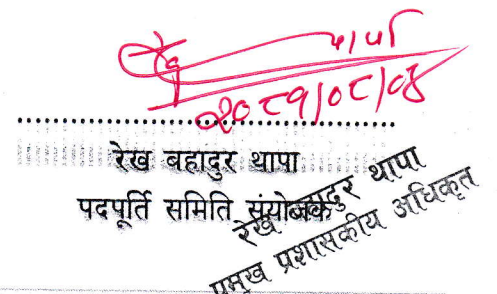 थापा
२०८१/०८/०४
रेख बहादुर थापा
पदपूर्ति समिति संयोजक
रेख बहादुर थापा
प्रमुख प्रशासकीय अधिकृत